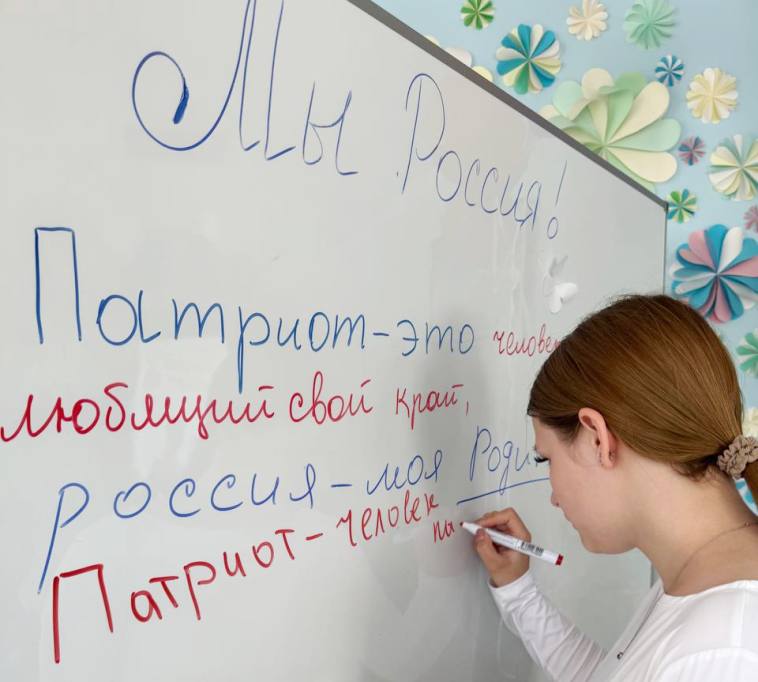 Мы Россия!
Патриот-это
любящий свой край,
россия-моя
Патриот-человек